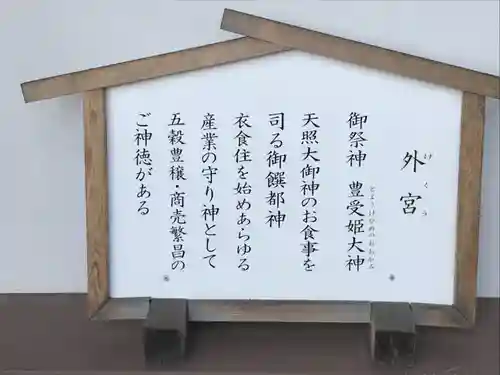 外宮
げくう
御祭神 豊受姫大神
とようけひめのおおかみ
天照大御神のお食事を
司る御饌都神
衣食住を始めあらゆる
産業の守り神として
五穀豊穣・商売繁昌の
ご神徳がある